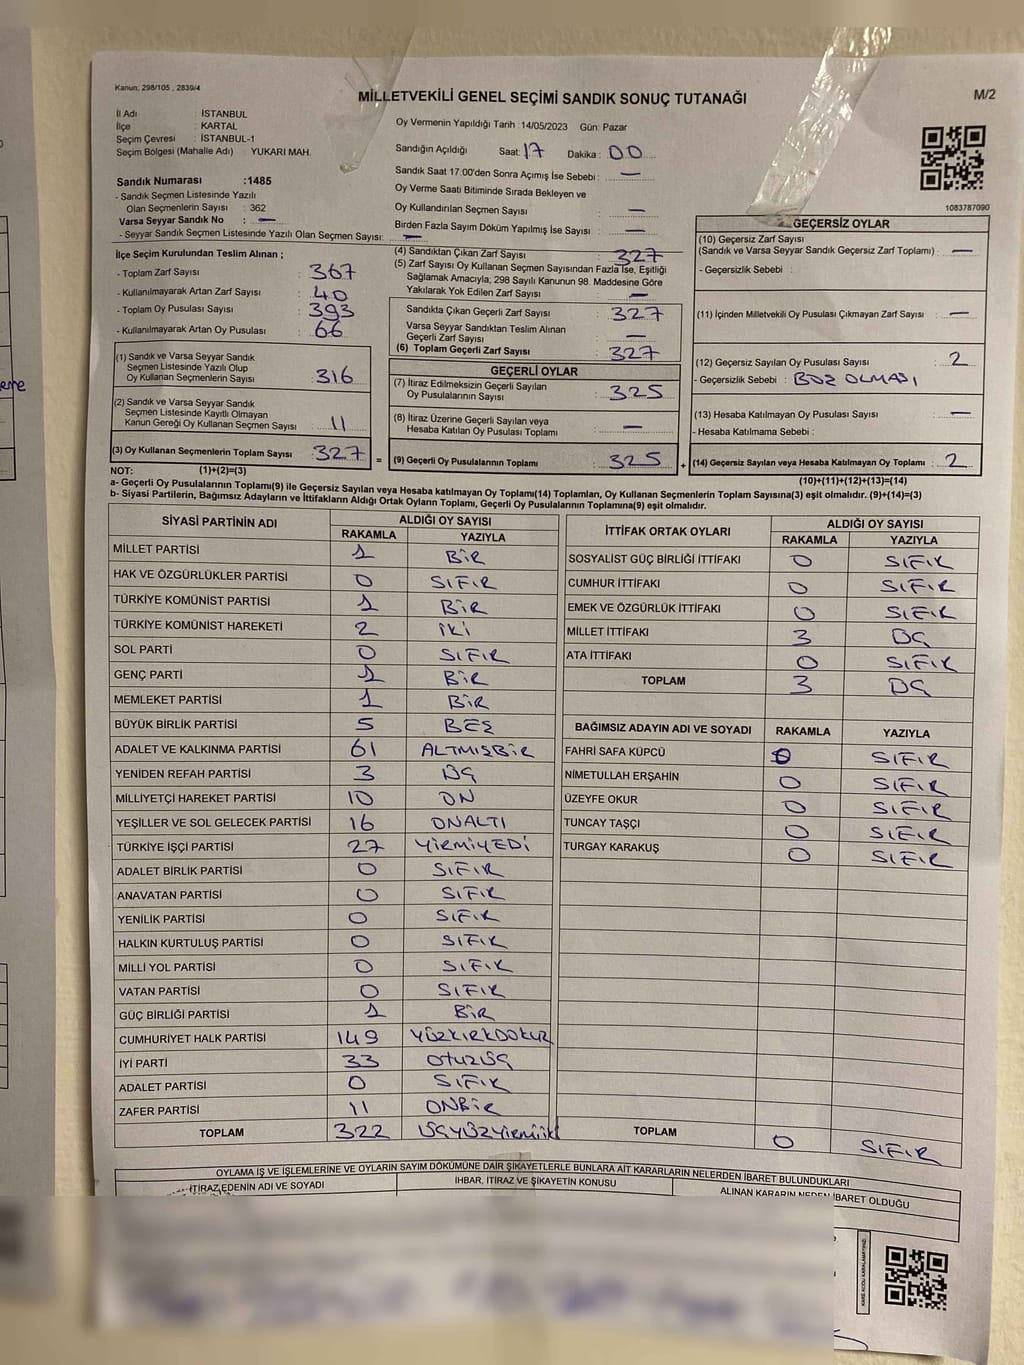 Kanun: 298/105 , 2839/4
MİLLETVEKİLİ GENEL SEÇİMİ SANDIK SONUÇ TUTANAĞI
M/2
İl Adı : İSTANBUL
İlçe : KARTAL
Seçim Çevresi : İSTANBUL-1
Seçim Bölgesi (Mahalle Adı) : YUKARI MAH.
Oy Vermenin Yapıldığı Tarih :14/05/2023 Gün: Pazar
Sandığın Açıldığı Saat: 17 Dakika : 00
Sandık Saat 17.00'den Sonra Açımış İse Sebebi : —
Oy Verme Saati Bitiminde Sırada Bekleyen ve
Oy Kullandırılan Seçmen Sayısı : —
Birden Fazla Sayım Döküm Yapılmış İse Sayısı : —
1083787090
Sandık Numarası :1485
- Sandık Seçmen Listesinde Yazılı
Olan Seçmenlerin Sayısı : 362
Varsa Seyyar Sandık No : —
- Seyyar Sandık Seçmen Listesinde Yazılı Olan Seçmen Sayısı: —
İlçe Seçim Kurulundan Teslim Alınan ;
- Toplam Zarf Sayısı : 367
- Kullanılmayarak Artan Zarf Sayısı : 40
- Toplam Oy Pusulası Sayısı : 393
- Kullanılmayarak Artan Oy Pusulası : 66
(1) Sandık ve Varsa Seyyar Sandık
Seçmen Listesinde Yazılı Olup
Oy Kullanan Seçmenlerin Sayısı : 316
(2) Sandık ve Varsa Seyyar Sandık
Seçmen Listesinde Kayıtlı Olmayan
Kanun Gereği Oy Kullanan Seçmen Sayısı : 11
(3) Oy Kullanan Seçmenlerin Toplam Sayısı : 327
(4) Sandıktan Çıkan Zarf Sayısı : 327
(5) Zarf Sayısı Oy Kullanan Seçmen Sayısından Fazla İse, Eşitliği
Sağlamak Amacıyla; 298 Sayılı Kanunun 98. Maddesine Göre
Yakılarak Yok Edilen Zarf Sayısı : —
Sandıkta Çıkan Geçerli Zarf Sayısı : 327
Varsa Seyyar Sandıktan Teslim Alınan
Geçerli Zarf Sayısı : —
(6) Toplam Geçerli Zarf Sayısı : 327
GEÇERLİ OYLAR
(7) İtiraz Edilmeksizin Geçerli Sayılan
Oy Pusulalarının Sayısı : 325
(8) İtiraz Üzerine Geçerli Sayılan veya
Hesaba Katılan Oy Pusulası Toplamı : —
= (9) Geçerli Oy Pusulalarının Toplamı : 325
GEÇERSİZ OYLAR
(10) Geçersiz Zarf Sayısı
(Sandık ve Varsa Seyyar Sandık Geçersiz Zarf Toplamı) : —
- Geçersizlik Sebebi :
(11) İçinden Milletvekili Oy Pusulası Çıkmayan Zarf Sayısı : —
(12) Geçersiz Sayılan Oy Pusulası Sayısı : 2
- Geçersizlik Sebebi : BOZ OLMASI
(13) Hesaba Katılmayan Oy Pusulası Sayısı : —
- Hesaba Katılmama Sebebi :
+ (14) Geçersiz Sayılan veya Hesaba Katılmayan Oy Toplamı : 2
NOT: (1)+(2)=(3)
(10)+(11)+(12)+(13)=(14)
a- Geçerli Oy Pusulalarının Toplamı(9) ile Geçersiz Sayılan veya Hesaba katılmayan Oy Toplamı(14) Toplamları, Oy Kullanan Seçmenlerin Toplam Sayısına(3) eşit olmalıdır. (9)+(14)=(3)
b- Siyasi Partilerin, Bağımsız Adayların ve İttifakların Aldığı Ortak Oyların Toplamı, Geçerli Oy Pusulalarının Toplamına(9) eşit olmalıdır.
SİYASİ PARTİNİN ADI ALDIĞI OY SAYISI
RAKAMLA YAZIYLA
MİLLET PARTİSİ 1 BİR
HAK VE ÖZGÜRLÜKLER PARTİSİ 0 SIFIR
TÜRKİYE KOMÜNİST PARTİSİ 1 BİR
TÜRKİYE KOMÜNİST HAREKETİ 2 İKİ
SOL PARTİ 0 SIFIR
GENÇ PARTİ 1 BİR
MEMLEKET PARTİSİ 1 BİR
BÜYÜK BİRLİK PARTİSİ 5 BEŞ
ADALET VE KALKINMA PARTİSİ 61 ALTMIŞBİR
YENİDEN REFAH PARTİSİ 3 ÜÇ
MİLLİYETÇİ HAREKET PARTİSİ 10 ON
YEŞİLLER VE SOL GELECEK PARTİSİ 16 ONALTI
TÜRKİYE İŞÇİ PARTİSİ 27 YİRMİYEDİ
ADALET BİRLİK PARTİSİ 0 SIFIR
ANAVATAN PARTİSİ 0 SIFIR
YENİLİK PARTİSİ 0 SIFIR
HALKIN KURTULUŞ PARTİSİ 0 SIFIR
MİLLİ YOL PARTİSİ 0 SIFIR
VATAN PARTİSİ 0 SIFIR
GÜÇ BİRLİĞİ PARTİSİ 1 BİR
CUMHURİYET HALK PARTİSİ 149 YÜZKIRKDOKUZ
İYİ PARTİ 33 OTUZÜÇ
ADALET PARTİSİ 0 SIFIR
ZAFER PARTİSİ 11 ONBİR
TOPLAM 322 ÜÇYÜZYİRMİİKİ
İTTİFAK ORTAK OYLARI ALDIĞI OY SAYISI
RAKAMLA YAZIYLA
SOSYALİST GÜÇ BİRLİĞİ İTTİFAKI 0 SIFIR
CUMHUR İTTİFAKI 0 SIFIR
EMEK VE ÖZGÜRLÜK İTTİFAKI 0 SIFIR
MİLLET İTTİFAKI 3 ÜÇ
ATA İTTİFAKI 0 SIFIR
TOPLAM 3 ÜÇ
BAĞIMSIZ ADAYIN ADI VE SOYADI RAKAMLA YAZIYLA
FAHRİ SAFA KÜPCÜ 0 SIFIR
NİMETULLAH ERŞAHİN 0 SIFIR
ÜZEYFE OKUR 0 SIFIR
TUNCAY TAŞÇI 0 SIFIR
TURGAY KARAKUŞ 0 SIFIR
TOPLAM 0 SIFIR
OYLAMA İŞ VE İŞLEMLERİNE VE OYLARIN SAYIM DÖKÜMÜNE DAİR ŞİKAYETLERLE BUNLARA AİT KARARLARIN NELERDEN İBARET BULUNDUKLARI
İTİRAZ EDENİN ADI VE SOYADI
İHBAR, İTİRAZ VE ŞİKAYETİN KONUSU
ALINAN KARARIN NEDEN İBARET OLDUĞU